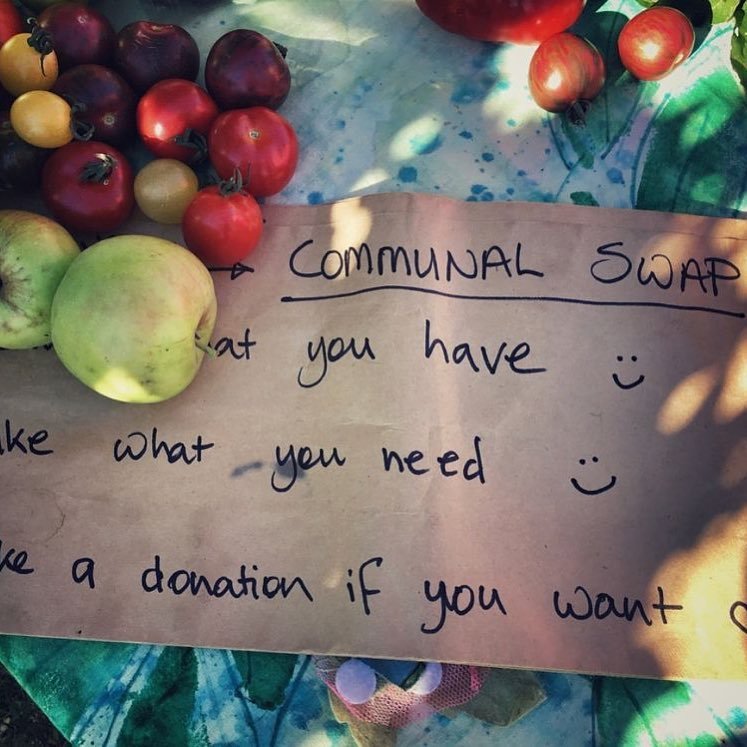 → COMMUNAL SWAP
at you have :)
ke what you need :)
ke a donation if you want